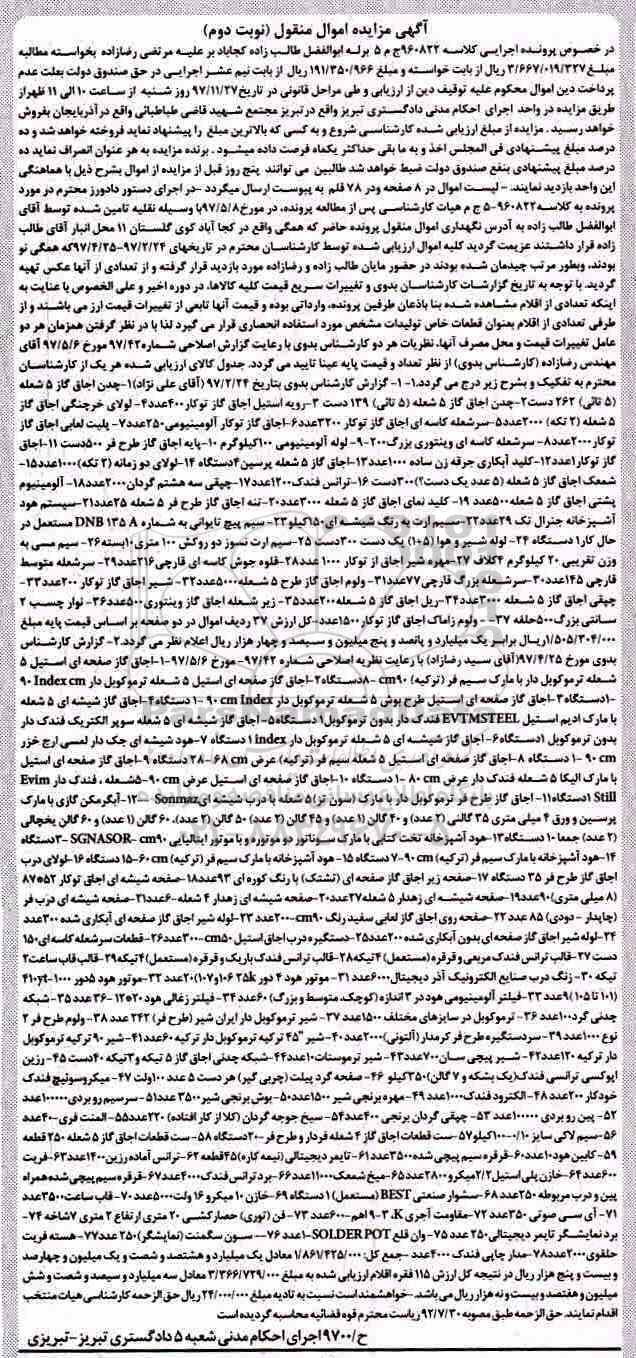 آگهی مزایده اموال منقول (نوبت دوم)
در خصوص پرونده اجرایی کلاسه ۹۶۰۸۲۲ج م ۵ برله ابوالفضل طالب زاده کجاباد بر علیه مرتضی رضازاده بخواسته مطالبه
مبلغ ۳/۶۶۷/۰۱۹/۳۲۷ ریال از بابت خواسته و مبلغ ۱۹۱/۳۵۰/۹۶۶ ریال از بابت نیم عشر اجرایی در حق صندوق دولت بعلت عدم
پرداخت دین اموال محکوم علیه توقیف دین از ارزیابی و طی مراحل قانونی در تاریخ ۹۷/۱۱/۲۷ روز شنبه از ساعت ۱۰ الی ۱۱ ظهراز
طریق مزایده در واحد اجرای احکام مدنی دادگستری تبریز واقع درتبریز مجتمع شهید قاضی طباطبائی واقع در آذربایجان بفروش
خواهد رسید . مزایده از مبلغ ارزیابی شده کارشناسی شروع و به کسی که بالاترین مبلغ را پیشنهاد نماید فروخته خواهد شد و ده
درصد مبلغ پیشنهادی فی المجلس اخذ و به ما بقی حداکثر یکماه فرصت داده میشود . برنده مزایده به هر عنوان انصراف نماید ده
درصد مبلغ پیشنهادی بنفع صندوق دولت ضبط خواهد شد طالبین می توانند پنج روز قبل از مزایده از اموال بشرح ذیل با هماهنگی
این واحد بازدید نمایند. - لیست اموال در ۸ صفحه ودر ۷۸ قلم به پیوست ارسال میگردد -در اجرای دستور دادورز محترم در مورد
پرونده به کلاسه ۹۶۰۸۲۲-۵ ج م هیات کارشناسی پس از مطالعه پرونده، در مورخ ۹۷/۵/۸با وسیله نقلیه تامین شده توسط آقای
ابوالفضل طالب زاده به آدرس نگهداری اموال منقول پرونده حاضر که همگی واقع در کجا آباد کوی گلستان ۱۱ محل انبار آقای طالب
زاده قرار داشتند عزیمت گردید کلیه اموال ارزیابی شده توسط کارشناسان محترم در تاریخهای ۹۷/۲/۲۴-۹۷/۴/۲۵که همگی نو
بودند، وبطور مرتب چیدمان شده بودند در حضور مایان طالب زاده و رضازاده مورد بازدید قرار گرفته و از تعدادی از آنها عکس تهیه
گردید. با توجه به تاریخ گزارشات کارشناسان بدوی و تغییرات سریع قیمت کلیه کالاها، در دوره اخیر و علی الخصوص با عنایت به
اینکه تعدادی از اقلام مشاهده شده بنا باذعان طرفین پرونده، وارداتی بوده و قیمت آنها تابعی از تغییرات قیمت ارز می باشند و از
طرفی تعدادی از اقلام بعنوان قطعات خاص تولیدات مشخص مورد استفاده انحصاری قرار می گیرد لذا با در نظر گرفتن همزمان هر دو
عامل تغییرات قیمت و محل مصرف آنها، نظریات هر دو کارشناس بدوی با رعایت گزارش اصلاحی شماره ۹۷/۴۲ مورخ ۹۷/۵/۶ آقای
مهندس رضازاده (کارشناس بدوی) از نظر تعداد و قیمت پایه عینا تایید می گردد. جدول کالای ارزیابی شده هر یک از کارشناسان
محترم به تفکیک و بشرح زیر درج می گردد.۱-۱- گزارش کارشناس بدوی بتاریخ ۹۷/۲/۲۴ (آقای علی نژاد)۱-چدن اجاق گاز ۵ شعله
(۵ تائی) ۲۶۲ دست۲-چدن اجاق گاز ۵ شعله (۵ تائی) ۱۳۹ دست ۳-رویه استیل اجاق گاز توکار ۴۰۰عدد۴- لولای خرچنگی اجاق گاز
۵ شعله (۲ تکه) ۲۰۰۰عدد۵-سرشعله کاسه ای اجاق گاز توکار ۳۲۰۰عدد۶-اجاق گاز توکار آلومینیومی۲۵۰عدد۷- پلیت لعابی اجاق گاز
توکار۲۰۰۰عدد۸-سرشعله کاسه ای وینتوری بزرگ۲۰۰-۹- لوله آلومینیومی ۱۰۰کیلوگرم ۱۰-پایه اجاق گاز طرح فر ۵۰۰دست ۱۱-اجاق
گاز توکار۱عدد۱۲-کلید آبکاری جرقه زن ساده ۱۰۰۰عدد۱۳-اجاق گاز ۵ شعله پرسین۴دستگاه ۱۴-لولای دو زمانه (۲ تکه)۱۰۰۰عدد۱۵-
شمعک اجاق گاز ۵ شعله (۵ عدد یک دست؟)۳۰۰دست ۱۶-ترانس فندک۱۲۰۰عدد۱۷-چپقی سه هشتم گردان۲۰۰۰عدد۱۸- آلومینیوم
پشتی اجاق گاز ۵ شعله۵۰۰عدد ۱۹- کلید نمای اجاق گاز ۵ شعله ۳۰۰۰عدد۲۰-تنه اجاق گاز طرح فر ۵ شعله ۲۵عدد۲۱-سیستم هود
آشپزخانه جنرال تک ۲۹عدد۲۲-سیم ارت به رنگ شیشه ای۱۵۰کیلو۲۳- سیم پیچ تایوانی به شماره DNB ۱۳۵ A مستعمل در
حال کار۱ دستگاه ۲۴- لوله شیر و هوا (۱۰۵) یک دست ۳۰۰دست ۲۵-سیم ارت نسوز دو روکش ۱۰۰ متری۱۰بسته۲۶- سیم مسی به
وزن تقریبی ۲۰ کیلوگرم ۴کلاف ۲۷-مهره شیر اجاق از توکار ۱۰۰۰ عدد۲۸-قلوه جوش کاسه ای قارچی۲۱۶عدد۲۹- سرشعله متوسط
قارچی ۱۴۵عدد۳۰-سرشعله بزرگ قارچی۷۷عدد۳۱- ولوم اجاق گاز طرح ۵ شعله۵۰۰۰عدد۳۲- شیر اجاق گاز توکار ۲۰۰عدد۳۳-
چپقی اجاق گاز ۵ شعله ۳۰۰۰عدد۳۴-ریل اجاق گاز ۵ شعله۲۰۰عدد۳۵- زیر شعله اجاق گاز وینتوری۵۰۰عدد۳۶- نوار چسب ۲
سانتی بزرگ۵۰۰حلقه ۳۷- - ولوم زاماک اجاق گاز توکار۱۵۰۰عدد-کل ارزش ۳۷ ردیف اموال در دو صفحه بر اساس قیمت پایه مبلغ
۱/۵۰۵/۳۰۴/۰۰۰ریال برابر یک میلیارد و پانصد و پنج میلیون و سیصد و چهار هزار ریال اعلام نظر می گردد.۲- گزارش کارشناس
بدوی مورخ ۹۷/۴/۲۵(آقای سید رضازاد) با رعایت نظریه اصلاحی شماره ۹۷/۴۲- مورخ ۹۷/۵/۶-۱-اجاق گاز صفحه ای استیل ۵
شعله ترموکوبل دار با مارک سیم فر (ترکیه) cm۹۰ -۸دستگاه۲-اجاق گاز صفحه ای استیل ۵ شعله ترموکوبل دار Index cm ۹۰
-۱دستگاه۳-اجاق گاز صفحه ای استیل طرح بوش ۵ شعله ترموکوبل دار ۹۰ cm Index -۱ دستگاه۴-اجاق گاز شیشه ای ۵ شعله
با مارک ادیم استیل EVTMSTEEL فندک دار بدون ترموکوبل۱ دستگاه۵- اجاق گاز شیشه ای ۵ شعله سوپر الکتریک فندک دار
بدون ترموکوبل ۱دستگاه۶-اجاق گاز شیشه ای ۵ شعله ترموکوبل دار index ۱ دستگاه ۷-هود شیشه ای جک دار لمسی ارج خزر
۹۰ cm -۱ دستگاه ۸-اجاق گاز صفحه ای استیل ۵ شعله سیم فر (ترکیه) عرض ۶۸ cm -۲۸ دستگاه ۹-اجاق گاز صفحه ای استیل
با مارک الیکا ۵ شعله فندک دار عرض ۸۰ cm -۱ دستگاه ۱۰-اجاق گاز صفحه ای استیل عرض ۹۰ cm-۵شعله ، فندک دار Evim
Still ۱دستگاه۱۱- اجاق گاز طرح فر ترموکوبل دار با مارک (سون تز) ۵ شعله با درب شیشه ایSonmaz -۱۲-آبگرمکن گازی با مارک
پرسین و ورق ۴ میلی متری ۳۵ گالنی (۲ عدد) و ۴۰ گالن (۱ عدد) و ۴۵ گالن (۲ عدد) ۵۰ گالن (۲ عدد)، ۶۰ گالن (۱ عدد) و ۶۰ گالن یخچالی
(۲ عدد) جمعا ۱۰ دستگاه۱۳-هود آشپزخانه تخت کتابی با مارک سوناتور دو موتوره و با موتور ایتالیایی SGNASOR- cm۹۰ -۳دستگاه
۱۴-هود آشپزخانه با مارک سیم فر (ترکیه) ۹۰ cm-۷ دستگاه ۱۵- هود آشپزخانه با مارک سیم فر (ترکیه) ۶۰ cm-۱۵ دستگاه ۱۶-لولای درب
اجاق گاز طرح فر ۳۵ دستگاه ۱۷-صفحه زیر اجاق گاز صفحه ای (تشتک) با رنگ کوره ای ۹۳عدد۱۸-صفحه شیشه ای اجاق توکار ۵۲*۸۷
(۸ میلی متری)۹۰عدد۱۹-صفحه شیشه ای زهدار ۵ شعله۲۷عدد۲۰-صفحه شیشه ای زهدار ۴ شعله -۶عدد۲۱-صفحه شیشه ای درب فر
(چاپدار - دودی) ۸۵ عدد ۲۲-صفحه روی اجاق گاز لعابی سفید رنگ ۹۰cm-۲۰۰عدد ۲۳-لوله شیر اجاق گاز صفحه ای آبکاری شده ۲۰۰عدد
۲۴-لوله شیر اجاق گاز صفحه ای بدون آبکاری شده ۲۰۰عدد۲۵-دستگیره درب اجاق استیل ۵۰cm-۳۰۰عدد۲۶-قطعات سرشعله کاسه ای۱۵۰
دست ۲۷-قالب ترانس فندک مربعی و قرقره (مستعمل) ۴تیکه۲۸-قالب ترانس فندک باریک و قرقره (مستعمل)۴تیکه۲۹-قالب قاب ساعت۲
تیکه ۳۰- زنگ درب صنایع الکترونیک آذر دیجیتال۶۰۰عدد ۳۱- موتور هود ۴ دور ۲۵k (۱۰۶و۱۰۷)۲۰عدد ۳۲-موتور هود ۵دور ۴۱۰yt-۱۰۰۰
(۱۰۱ تا ۱۰۵) ۹عدد ۳۳-فیلتر آلومینیومی هود در ۳ اندازه (کوچک، متوسط و بزرگ) ۶۰عدد ۳۴- فیلتر زغالی هود ۲۰*۱۲-۳۶ عدد ۳۵-شبکه
چدنی گرد۱۰۰عدد ۳۶- ترموکوبل در سایزهای مختلف ۱۵۰۰عدد ۳۷- شیر ترموکوبل دار ایران شیر (طرح فر) ۲۴۲ عدد ۳۸- ولوم طرح فر ۲
نوع ۱۰۰۰عدد ۳۹- سردستگیره طرح فر کرمدار (آلتونی)۲۰۰۰عدد ۴۰-شیر "۴۵ ترکیه ترموکوبل دار ترکیه ۶۰عدد ۴۱-شیر ۹۰ ترکیه ترموکوبل
دار ترکیه ۱۲۰عدد ۴۲- شیر پیچی سان۷۰۰عدد۴۳-شیر ترموستات۱۰۰عدد۴۴-شبکه چدنی اجاق گاز ۵ تیکه و۳تیکه ۴۰دست ۴۵- رزین
اپوکسی ترانسی فندک(یک بشکه و ۷ گالن)۳۵۰کیلو ۴۶- صفحه گرد پیلت (چربی گیر) هر دست ۵ عدد ۱۰۰ولت ۴۷- میکروسوئیچ فندک
خودکار ۲۰۰عدد ۴۸-الکترود فندک۱۰۰۰عدد ۴۹-مهره برنجی شیر ۱۵۰۰عدد ۵۰- بوش برنجی شیر ۳۵۰۰عدد۵۱- سرسیم رو بردی۱۰۰۰۰۰عدد
۵۲- پین رو بردی ۱۰۰۰۰۰عدد ۵۳- چپقی گردان برنجی ۴۰۰عدد۵۴- سیخ جوجه گردان (کلا از کار افتاده) ۲۲۰عدد۵۵-المنت فری -۴۰عدد
۵۶-سیم لاکی سایز ۰/۱۰-۱۰۰کیلو۵۷-ست قطعات اجاق گاز ۴ شعله فردار و طرح فر-۲۰دستگاه ۵۸-ست قطعات اجاق گاز ۵ شعله ۲۵۰ قطعه
۵۹-کابین هود۱۰عدد۶۰-قرقره سیم پیچی شده۳۵۰۰عدد۶۱-تایمر دیجیتالی (نیمه کاره)۴۵قطعه ۶۲-ترانس آماده رزین۱۴۰۰عدد۶۳-فریت
۶۰۰عدد۶۴-خازن پلی استیل۲/۲میکرو۲۸۰۰عدد۶۵-میخ شمعک۱۱۰۰۰عدد۶۶-برد ترانس فندک۴۰۰۰عدد۶۷-قرقره سیم پیچی شده همراه
پین و درب مربوطه ۲۵۰عدد ۶۸-سشوار صنعتی BEST (مستعمل)۱ دستگاه ۶۹-خازن ۱۰ میکرو ۱۶ ولت۵۰۰۰عدد۷۰-قاب ساعت۳۵۰۰عدد
۷۱- آی سی صوتی ۳۵۰عدد۷۲-مقاومت آجری ۳،K-۹ اهم-۶۰۰عدد ۷۳-فن (توری) حصارکشی ۲۰ متری ارتفاع ۲ متری ۷شاخه ۷۴-
برد نمایشگر تایمر دیجیتالی۲۵۰ عدد ۷۵-وان قلع SOLDER POT-۱عدد ۷۶--سون سگمنت (نمایشگر)۲۵۰عدد۷۷-هسته فریت
حلقوی۲۰۰۰عدد۷۸-مدار چاپی فندک ۴۰۰۰عدد -جمع کل: ۱/۸۶۱/۴۲۵/۰۰۰ معادل یک میلیارد و هشتصد و شصت و یک میلیون و چهارصد
و بیست و پنج هزار ریال در نتیجه کل ارزش ۱۱۵ فقره اقلام ارزیابی شده به مبلغ ۳/۳۶۶/۷۲۹/۰۰۰ معادل سه میلیارد و سیصد و شصت و شش
میلیون و هفتصد و بیست و نه هزار ریال می باشد.-خواهشمند است نسبت به تادیه مبلغ ۲۴/۰۰۰/۰۰۰ ریال حق الزحمه کارشناسی هیات منتخب
اقدام نمایند. حق الزحمه طبق مصوبه ۹۲/۷/۳۰ ریاست محترم قوه قضائیه محاسبه گردیده است
ح/۹۷۰۰ اجرای احکام مدنی شعبه ۵ دادگستری تبریز-تبریزی